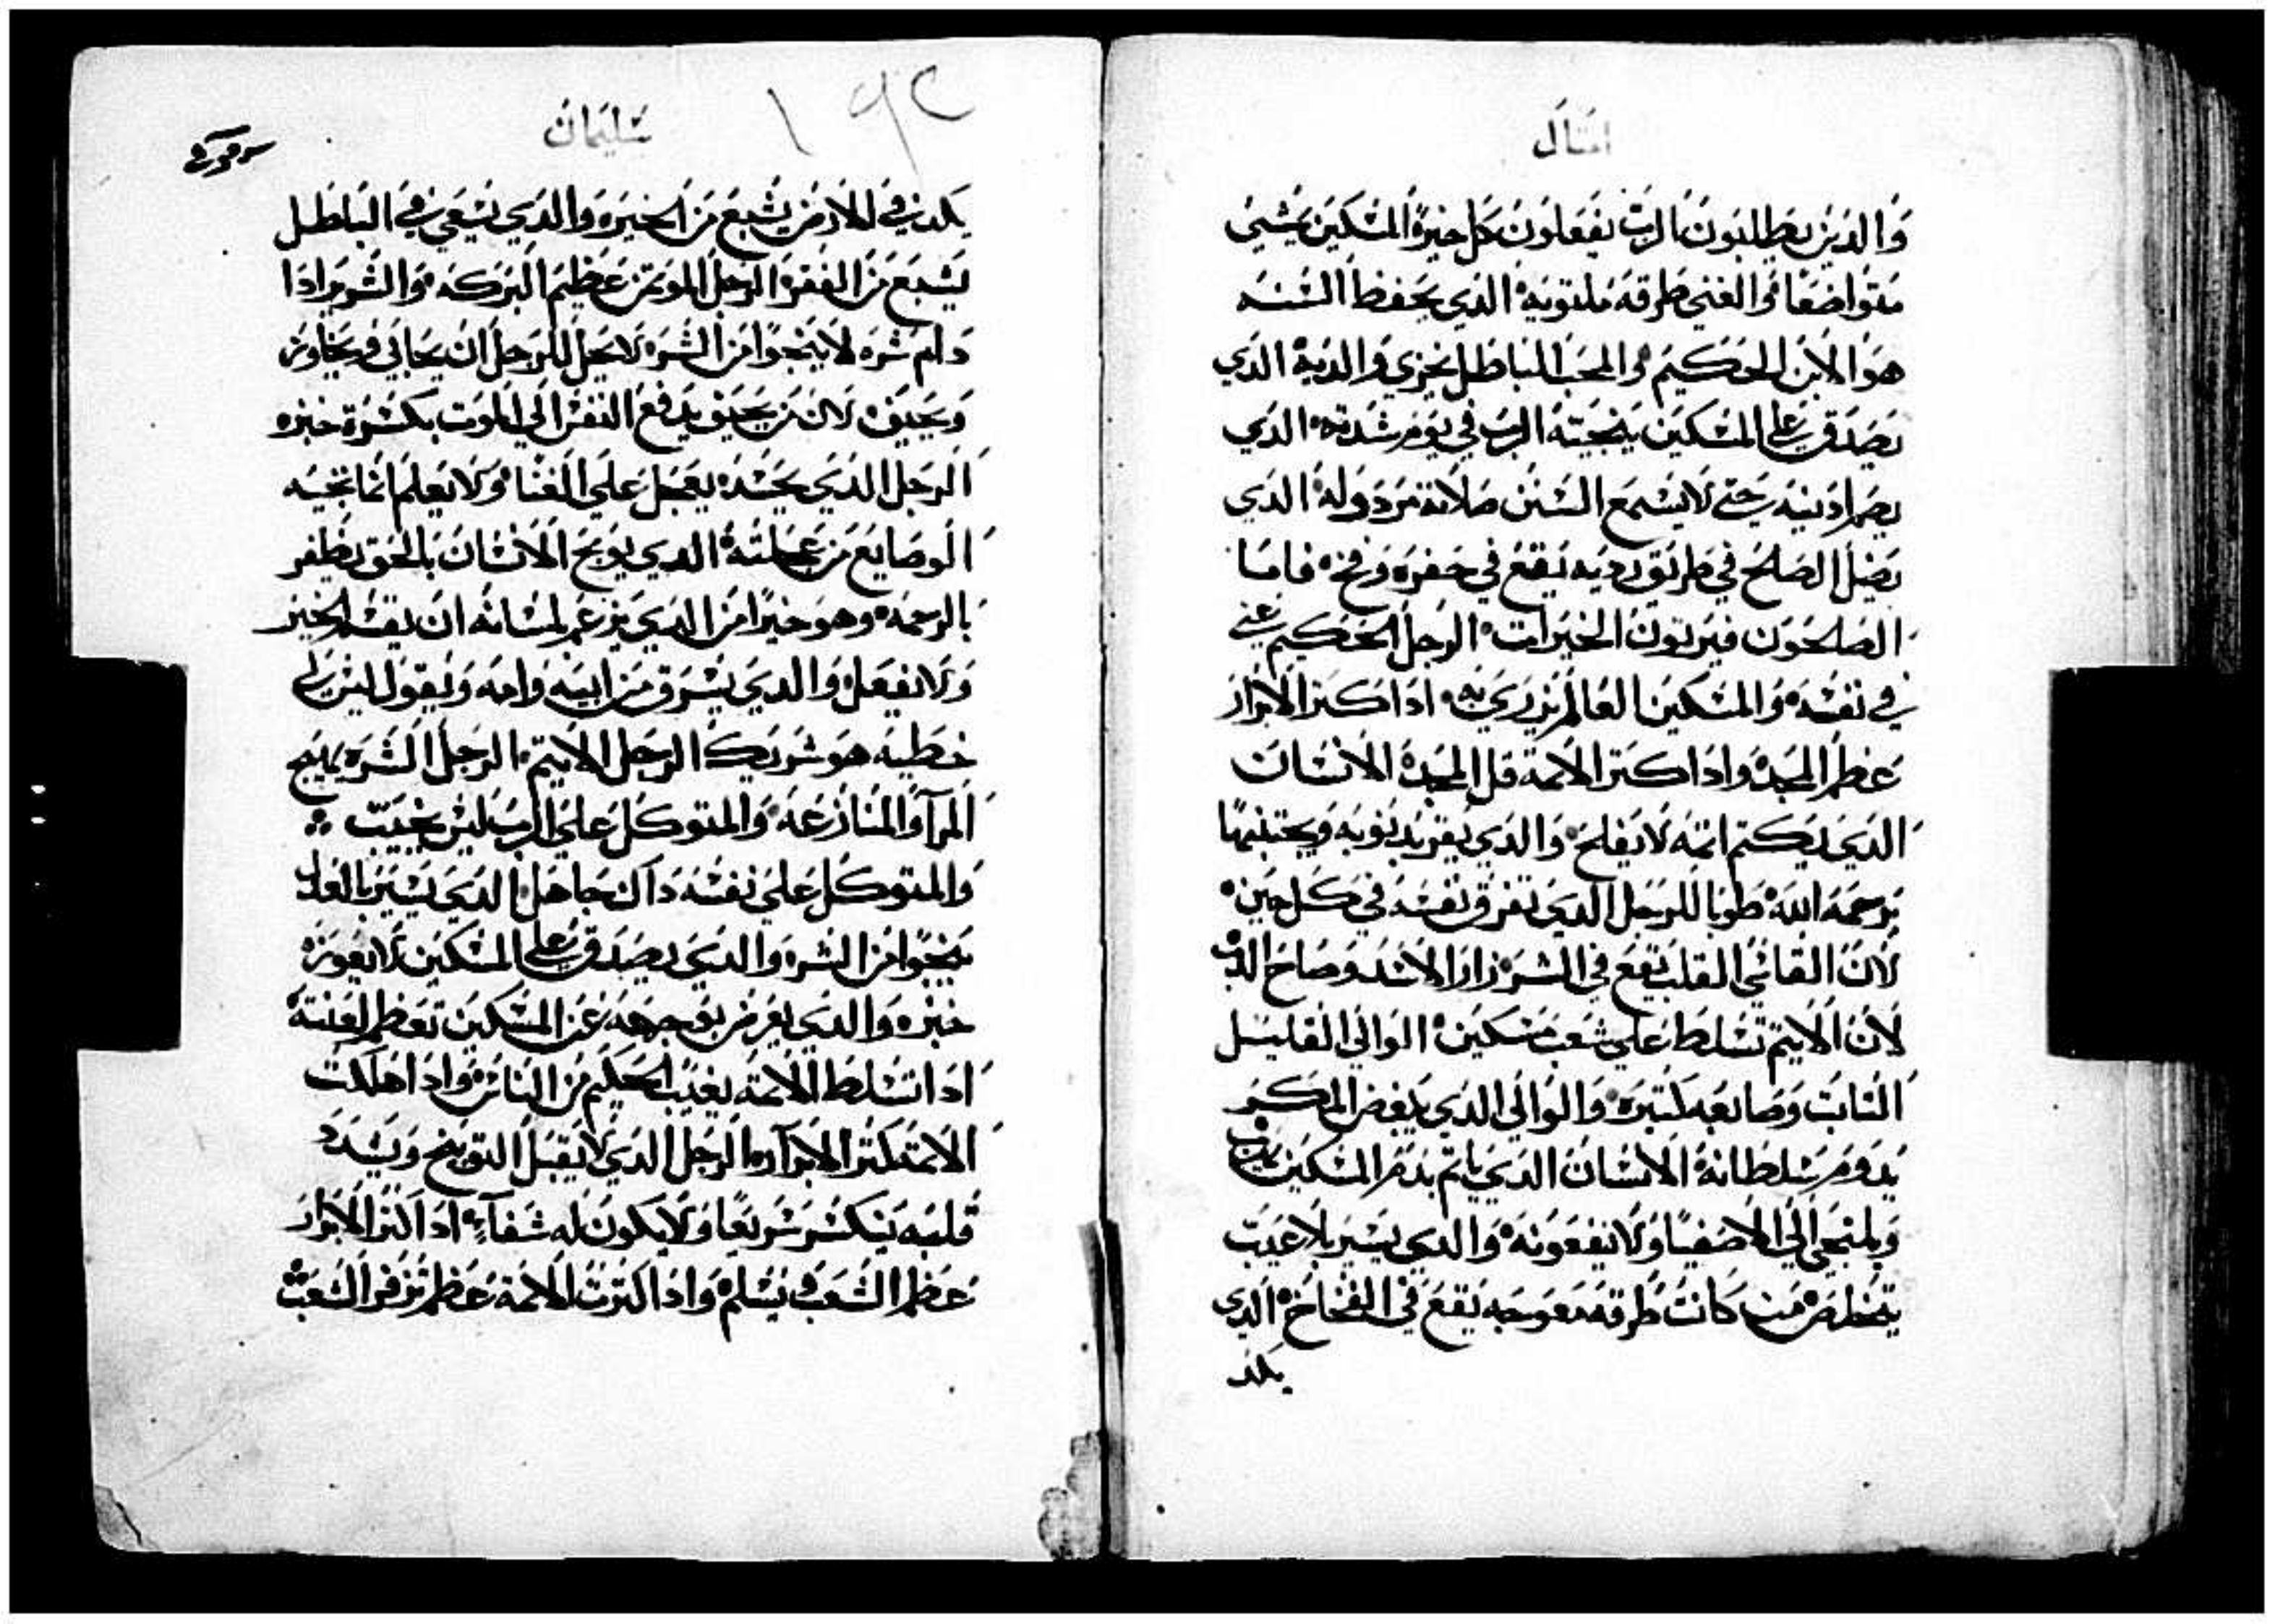 امتال
والدين يطلبون الرب يفعلون كل خيرة المسكين يمشي
متواضعا والغني طرقه ملتويه الدي يحفظ السنه
هو الابن الحكيم والمحب الباطل يخزي والديه الدي
يصدق علي المسكين ينجيته الرب في يوم شدته الدي
يصم ادنيه حتي لا يسمع السنن صلاته مردوله الدي
يضل الصلح في طريق رديه يقع في حفره وفخ فاما
الصلحون فيرتون الخيرات الرجل الحكيم غني
في نفسه والمسكين العالم يزري به ادا كتر الابرار
عظم المجد وادا كتر الاتمة قل المجد الانسان
الدي يكتم اتمه لا يفلح والدي يقر بدنوبه ويجتنبها
يرحمه الله طوبا للرجل الدي تفرق نفسه في كل حين
لان القاسي القلب يقع في الشر زار الاسد وصاح الدب
لان الاتيم تسلط علي شعب مسكين الوالي القليل
التبات وصانعه كتيره والوالي الدي يبغض المكر
يدوم سلطانه الانسان الدي ياتم بدم المسكين يهرب
ويلتجي الي الاصفيا ولا ينفعونه والدي يسير بلا عيب
يتخلص من كانت طرقه معوجه يقع في الفخاخ الدي
يكد
سليمان
١٩٢
يكد في الارض يشبع من الخيره والدي يسعي في الباطل
يشبع من الفقر الرجل الموتمن عظيم البركه والشرير ادا
دام شره لا ينجوا من الشره لا يحل للرجل ان يحابي
ويحيف لان من يحيف يدفع النفس الي الموت بكسرة خبزه
الرجل الدي يحسد يعجل علي الغنا ولا يعلم انما تجيه
الوصايع من عملته الدي يوبخ الانسان بالحق يظفر
بالرحمه وهو خيرا من الدي يزعم لسانه ان يقسم الخير
ولا يفعله والدي يسرق من ابيه وامه ويقول ليس لي
خطيه هو شريك الرجل الاتيم الرجل الشره يهيج
المرآ والمنازعه والمتوكل علي الرب ليس يخيب
والمتوكل علي نفسه داك جاهل الدي يسير بالعدل
ينجوا من الشر والدي يصدق علي المسكين لا يعوزه
خبزه والدي يعرض بوجهه عن المسكين تعظم لعنته
ادا تسلط الاتمه يغيب الحكيم من الناس وادا هلكت
الاتمه كتر الابرآر الرجل الدي لا يقبل التوبيخ ويشدد
قلبه ينكسر سريعا ولا يكون له شفآء ادا كتر الابرار
عظم الشعب ويسلم وادا كترت الاتمة عظم تزفر الشعب